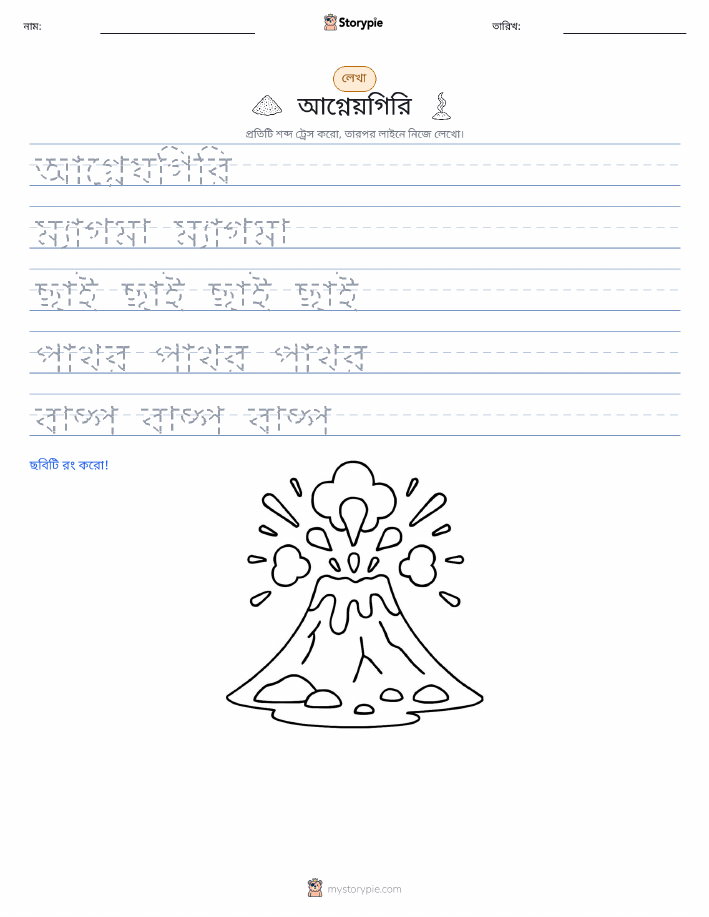 নাম:
Storypie
তারিখ:
লেখা
আগ্নেয়গিরি
প্রতিটি শব্দ ট্রেস করো, তারপর লাইনে নিজে লেখো।
আগ্নেয়গিরি
ম্যাগমা ম্যাগমা
ছাই ছাই ছাই ছাই
পাথর পাথর পাথর
বাষ্প বাষ্প বাষ্প
ছবিটি রং করো!
mystorypie.com